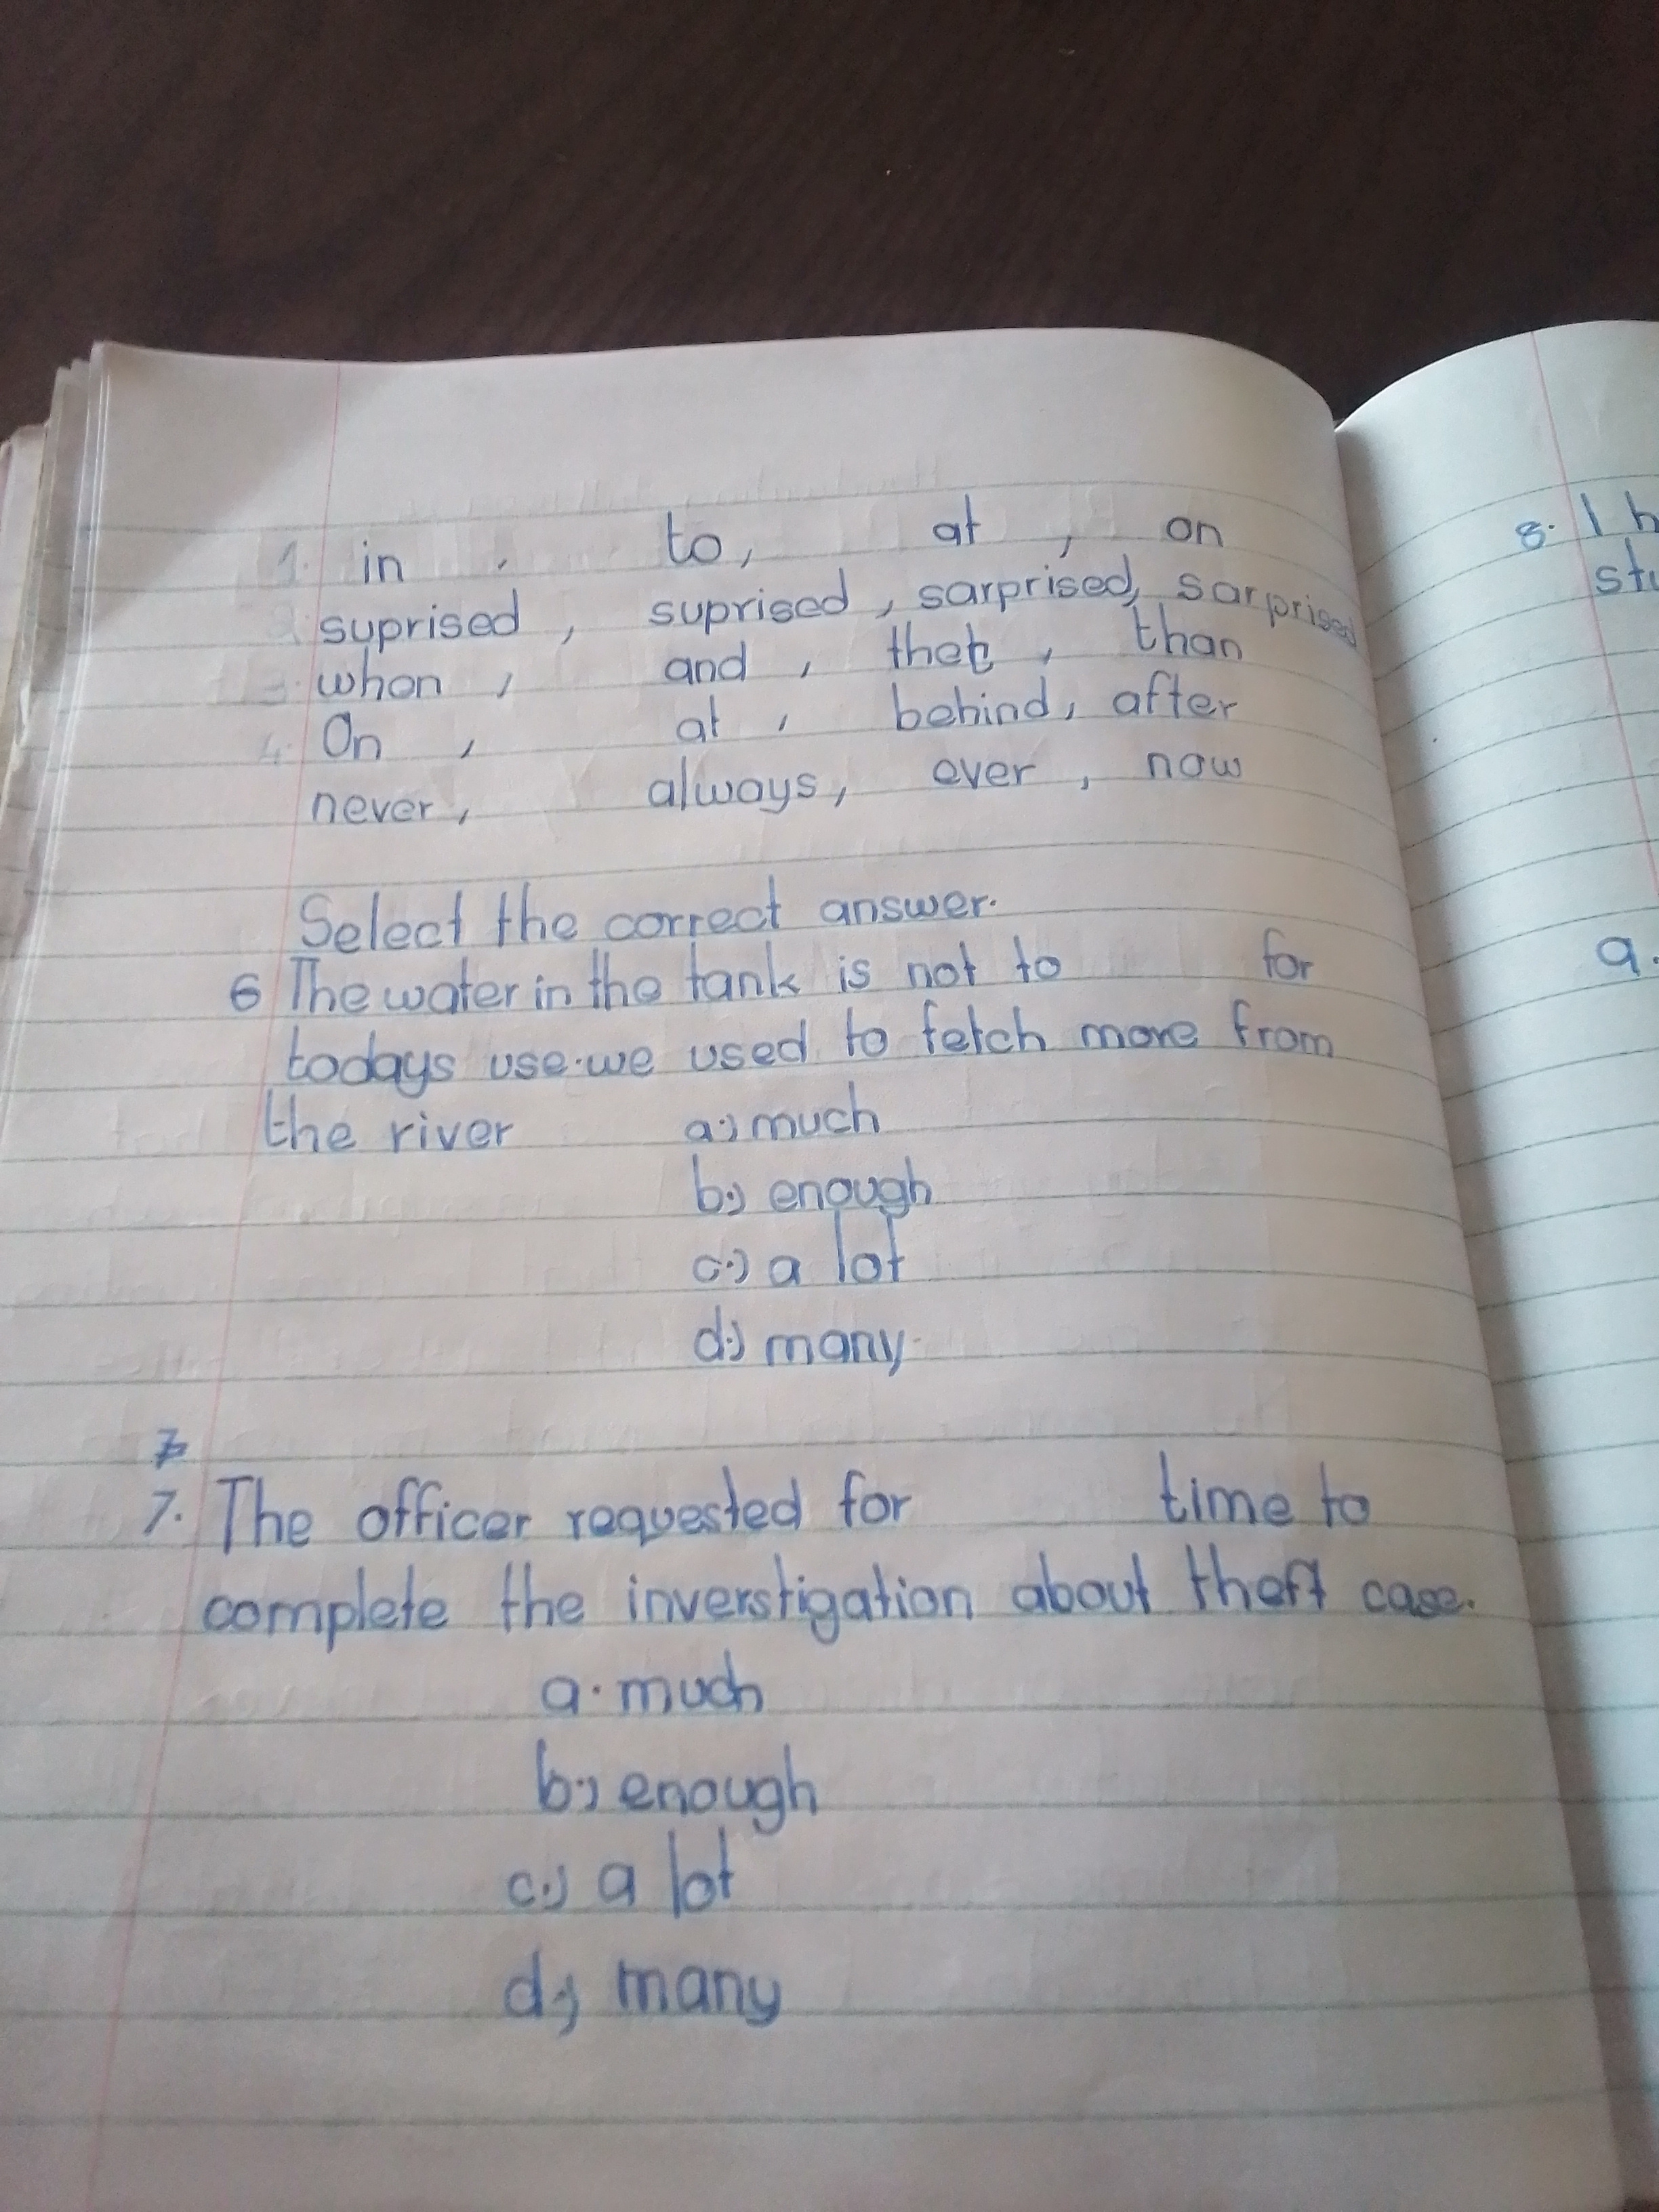 1. in , to, at , on
suprised , suprised , sarprised, sarprised
whon , and , thet , than
4. On , at , behind, after
never, always, ever , now
Select the correct answer.
6 The water in the tank is not to for
todays use.we used to fetch more from
the river a.) much
b.) enough
c.) a lot
d.) many.
7
7. The officer requested for time to
complete the inverstigation about theft case.
a. much
b.) enough
c.) a lot
d.) many
8. I h
stu
a.